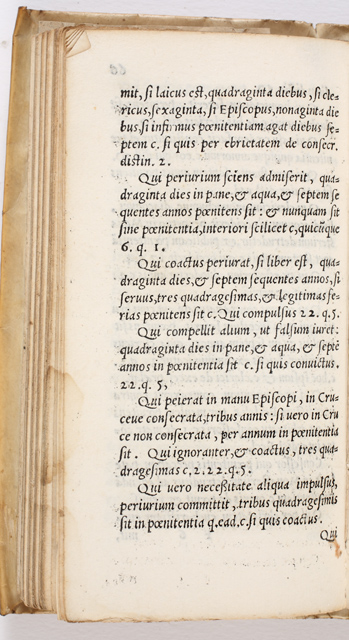 mit, si laicus est, quadraginta diebus, si cle-
ricus, sexaginta, si Episcopus, nonaginta die
bus, si infirmus pœnitentiam agat diebus se-
ptem c. si quis per ebrietatem de consecr.
distin. 2.
Qui periurium sciens admiserit, qua-
draginta dies in pane, & aqua, & septem se
quentes annos pœnitens sit: & nunquam sit
sine pœnitentia, interiori scilicet c, quicũque
6. q. 1.
Qui coactus periurat, si liber est, qua-
draginta dies, & septem sequentes annos, si
seruus, tres quadragesimas, & legitimas fe-
rias pœnitens sit c. Qui compulsus 22. q. 5.
Qui compellit alium, ut falsum iuret:
quadraginta dies in pane, & aqua, & septẽ
annos in pœnitentia sit c. si quis conuictus.
22. q. 5,
Qui peierat in manu Episcopi, in Cru-
ceue consecrata, tribus annis: si uero in Cru
ce non consecrata, per annum in pœnitentia
sit. Qui ignoranter, & coactus, tres qua-
dragesimas c, 2. 22. q. 5.
Qui uero necessitate aliqua impulsus,
periurium committit, tribus quadragesimis
sit in pœnitentia q. ead. c. si quis coactus.
Qui